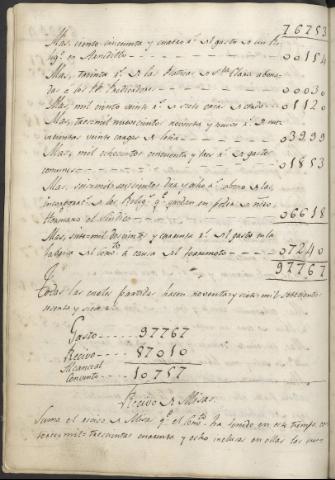 76753
Mas, ciento cincuenta y cuatro r.^s el gasto en un
en Aranditto ---- 00154
Mas, treinta r.^s de las Aluricas, a S.^ta Clara abona-
das a los P.^s Predicadores ---- 00030
Mas, mil ciento veinte r.^s 01120
Mas, tres mil novecientos noventa y nueve r.^s
cientas veinte cargas de leña ---- 03999
Mas, mil ochocientos cincuenta y tres r.^s gastos
comunes ---- 01853
Mas, seis mil seiscientos diez y ocho r.^s abono a las
a los Relig.^s q.^e quedan en poder de ntro.
Hermano el sindico ---- 06618
Mas, siete mil doscientos y cuarenta r.^s el gasto en la
del conv.^to a causa del terremoto ---- 07240
97767
Todas las cuales partidas hacen noventa y siete mil setecientos
sesenta y siete r.^s
Gasto ---- 97767
Recivo ---- 87010
Alcanza el
Convento ---- 10757
Recivo de Misas.
Suma el recivo de Misas q.^e el Conv.^to ha tenido en este tiempo,
mil trescientas cincuenta y ocho inclusas en ellas las